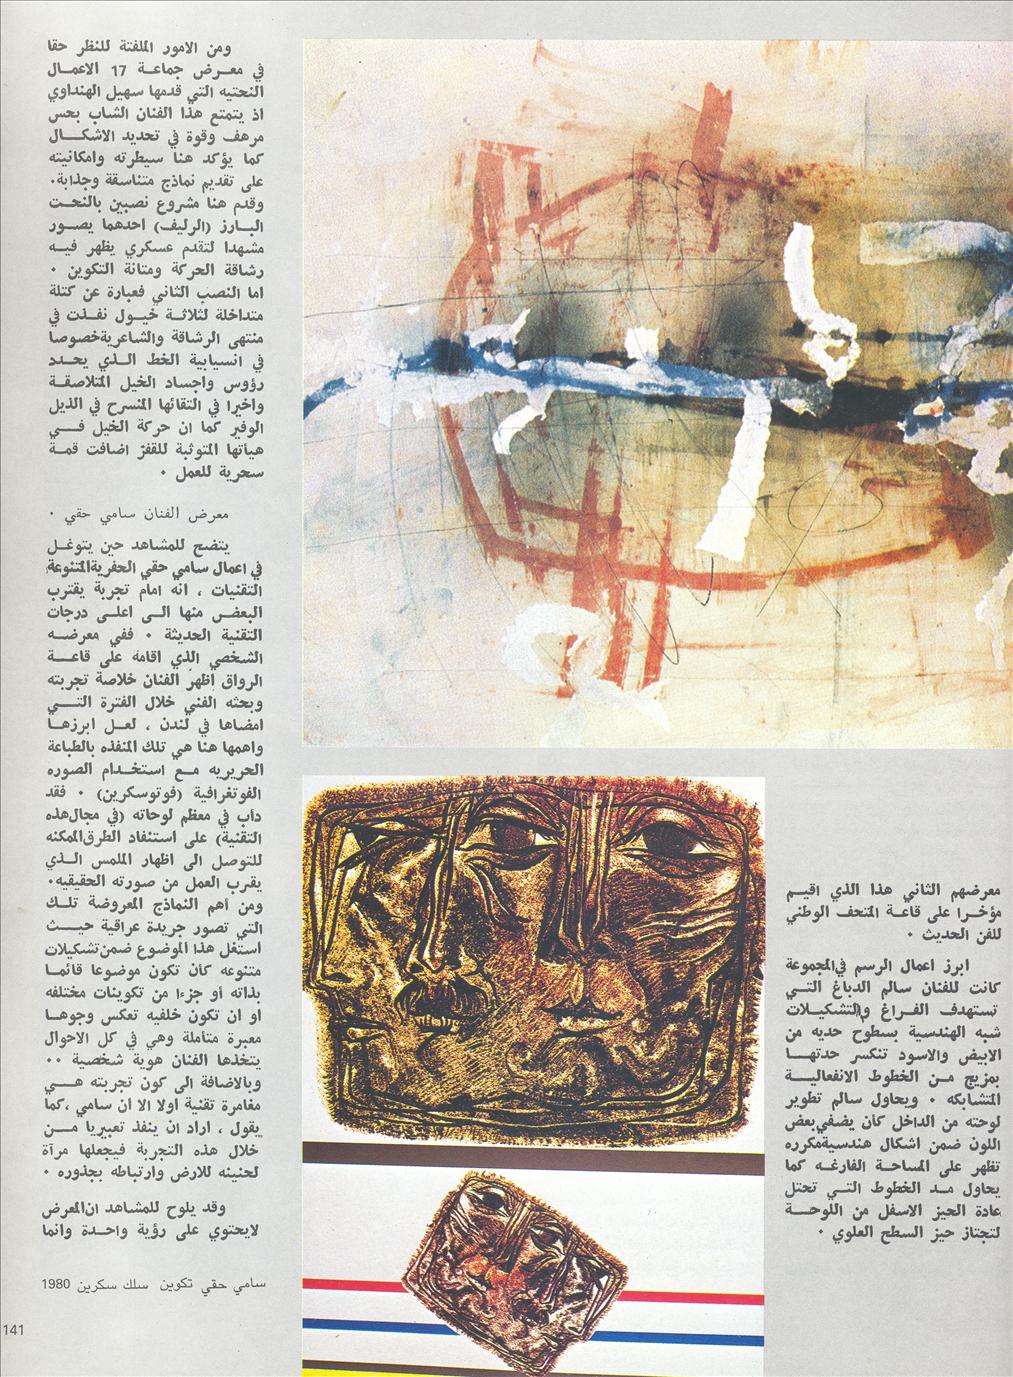 معرضهم الثاني هذا الذي اقيم
مؤخرا على قاعة المتحف الوطني
للفن الحديث ٠
ابرز اعمال الرسم في المجموعة
كانت للفنان سالم الدباغ التي
تستهدف الفراغ والتشكيلات
شبه الهندسية بسطوح حديه من
الابيض والاسود تنكسر حدتها
بمزيج من الخطوط الانفعالية
المتشابكه ٠ ويحاول سالم تطوير
لوحته من الداخل كان يضفي بعض
اللون ضمن اشكال هندسية مكرره
تظهر على المساحة الفارغه كما
يحاول مد الخطوط التي تحتل
عادة الحيز الاسفل من اللوحة
لتجتاز حيز السطح العلوي ٠
ومن الامور الملفتة للنظر حقا
في معرض جماعة 17 الاعمال
النحتيه التي قدمها سهيل الهنداوي
اذ يتمتع هذا الفنان الشاب بحس
مرهف وقوة في تحديد الاشكال
كما يؤكد هنا سيطرته وامكانيته
على تقديم نماذج متناسقة وجذابة٠
وقدم هنا مشروع نصبين بالنحت
البارز (الرليف) احدهما يصور
مشهدا لتقدم عسكري يظهر فيه
رشاقة الحركة ومتانة التكوين ٠
اما النصب الثاني فعبارة عن كتلة
متداخلة لثلاثة خيول نفذت في
منتهى الرشاقة والشاعرية خصوصا
في انسيابية الخط الذي يحدد
رؤوس واجساد الخيل المتلاصقة
واخيرا في التقائها المنسرح في الذيل
الوفير كما ان حركة الخيل في
هيأتها المتوثبة للقفز اضافت قمة
سحرية للعمل ٠
معرض الفنان سامي حقي ٠
يتضح للمشاهد حين يتوغل
في اعمال سامي حقي الحفرية المتنوعة
التقنيات ، انه امام تجربة يقترب
البعض منها الى اعلى درجات
التقنية الحديثة ٠ ففي معرضه
الشخصي الذي اقامه على قاعة
الرواق اظهر الفنان خلاصة تجربته
وبحثه الفني خلال الفترة التي
امضاها في لندن ، لعل ابرزها
واهمها هنا هي تلك المنفذه بالطباعة
الحريريه مع استخدام الصوره
الفوتغرافية (فوتوسكرين) ٠ فقد
داب في معظم لوحاته (في مجال هذه
التقنية) على استنفاد الطرق الممكنه
للتوصل الى اظهار الملمس الذي
يقرب العمل من صورته الحقيقيه٠
ومن اهم النماذج المعروضة تلك
التي تصور جريدة عراقية حيث
استغل هذا الموضوع ضمن تشكيلات
متنوعه كان تكون موضوعا قائما
بذاته أو جزءا من تكوينات مختلفه
او ان تكون خلفيه تعكس وجوها
معبرة متاملة وهي في كل الاحوال
يتخذها الفنان هوية شخصية ٠٠
وبالاضافة الى كون تجربته هي
مغامرة تقنية اولا الا ان سامي ،كما
يقول ، اراد ان ينفذ تعبيريا من
خلال هذه التجربة فيجعلها مرآة
لحنينه للارض وارتباطه بجذوره ٠
وقد يلوح للمشاهد ان المعرض
لايحتوي على رؤية واحدة وانما
سامي حقي تكوين سلك سكرين 1980
141